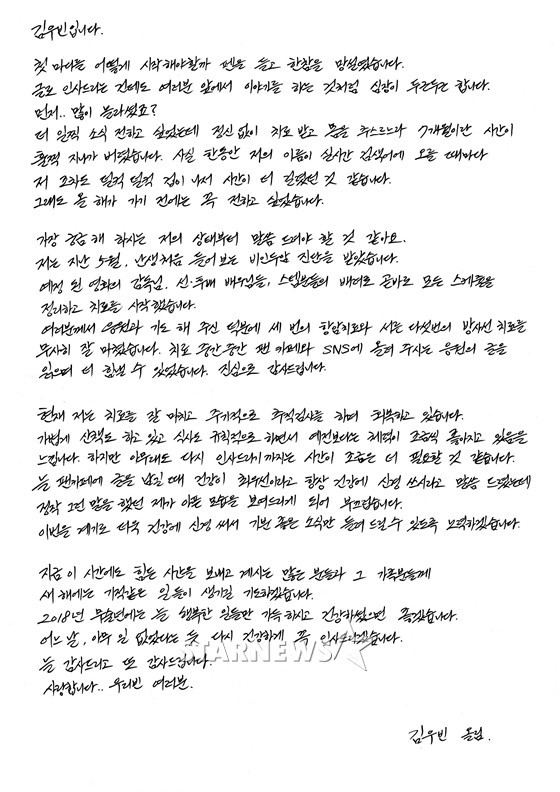 김우빈입니다.
첫 마디는 어떻게 시작해야할까 펜을 들고 한참을 망설였습니다.
글로 인사드리는 건데도 여러분 앞에서 이야기를 하는 것처럼 심장이 두근두근 합니다.
먼저.. 많이 놀라셨죠?
더 일찍 소식 전하고 싶었는데 정신 없이 치료 받고 몸을 추스르느라 7개월이란 시간이
훌쩍 지나가 버렸습니다. 사실 한동안 저의 이름이 실시간 검색어에 오를 때마다
저 조차도 덜컥 덜컥 겁이 나서 시간이 더 걸렸던 것 같습니다.
그래도 올 해가 가기 전에는 꼭 전하고 싶었습니다.
가장 궁금해 하시는 저의 상태부터 말씀 드려야 할 것 같아요.
저는 지난 5월, 난생처음 들어보는 비인두암 진단을 받았습니다.
예정 된 영화의 감독님, 선·후배 배우님들, 스텝분들의 배려로 곧바로 모든 스케줄을
정리하고 치료를 시작했습니다.
여러분께서 응원과 기도 해 주신 덕분에 세 번의 항암치료와 서른 다섯번의 방사선 치료를
무사히 잘 마쳤습니다. 치료 중간중간 팬 카페와 SNS에 올려 주시는 응원의 글을
읽으며 더 힘낼 수 있었습니다. 진심으로 감사드립니다.
현재 저는 치료를 잘 마치고 주기적으로 추적검사를 하며 회복하고 있습니다.
가볍게 산책도 하고 있고 식사도 규칙적으로 하면서 예전보다는 체력이 조금씩 좋아지고 있음을
느낍니다. 하지만 아무래도 다시 인사드리기까지는 시간이 조금은 더 필요할 것 같습니다.
늘 팬카페에 글을 남길 때 건강이 최우선이라고 항상 건강에 신경 쓰시라고 말씀 드렸는데
정작 그런 말을 했던 제가 아픈 모습을 보여드리게 되어 부끄럽습니다.
이번을 계기로 더욱 건강에 신경 써서 기분 좋은 소식만 들려 드릴 수 있도록 노력하겠습니다.
지금 이 시간에도 힘든 시간을 보내고 계시는 많은 분들과 그 가족분들께
새 해에는 기적같은 일들이 생기길 기도하겠습니다.
2018년 무술년에는 늘 행복한 일들만 가득하시고 건강하셨으면 좋겠습니다.
어느 날, 아무 일 없었다는 듯 다시 건강하게 꼭 인사드리겠습니다.
STARNEWS
늘 감사드리고 또 감사드립니다.
사랑합니다.. 우리빈 여러분.
김우빈 올림.